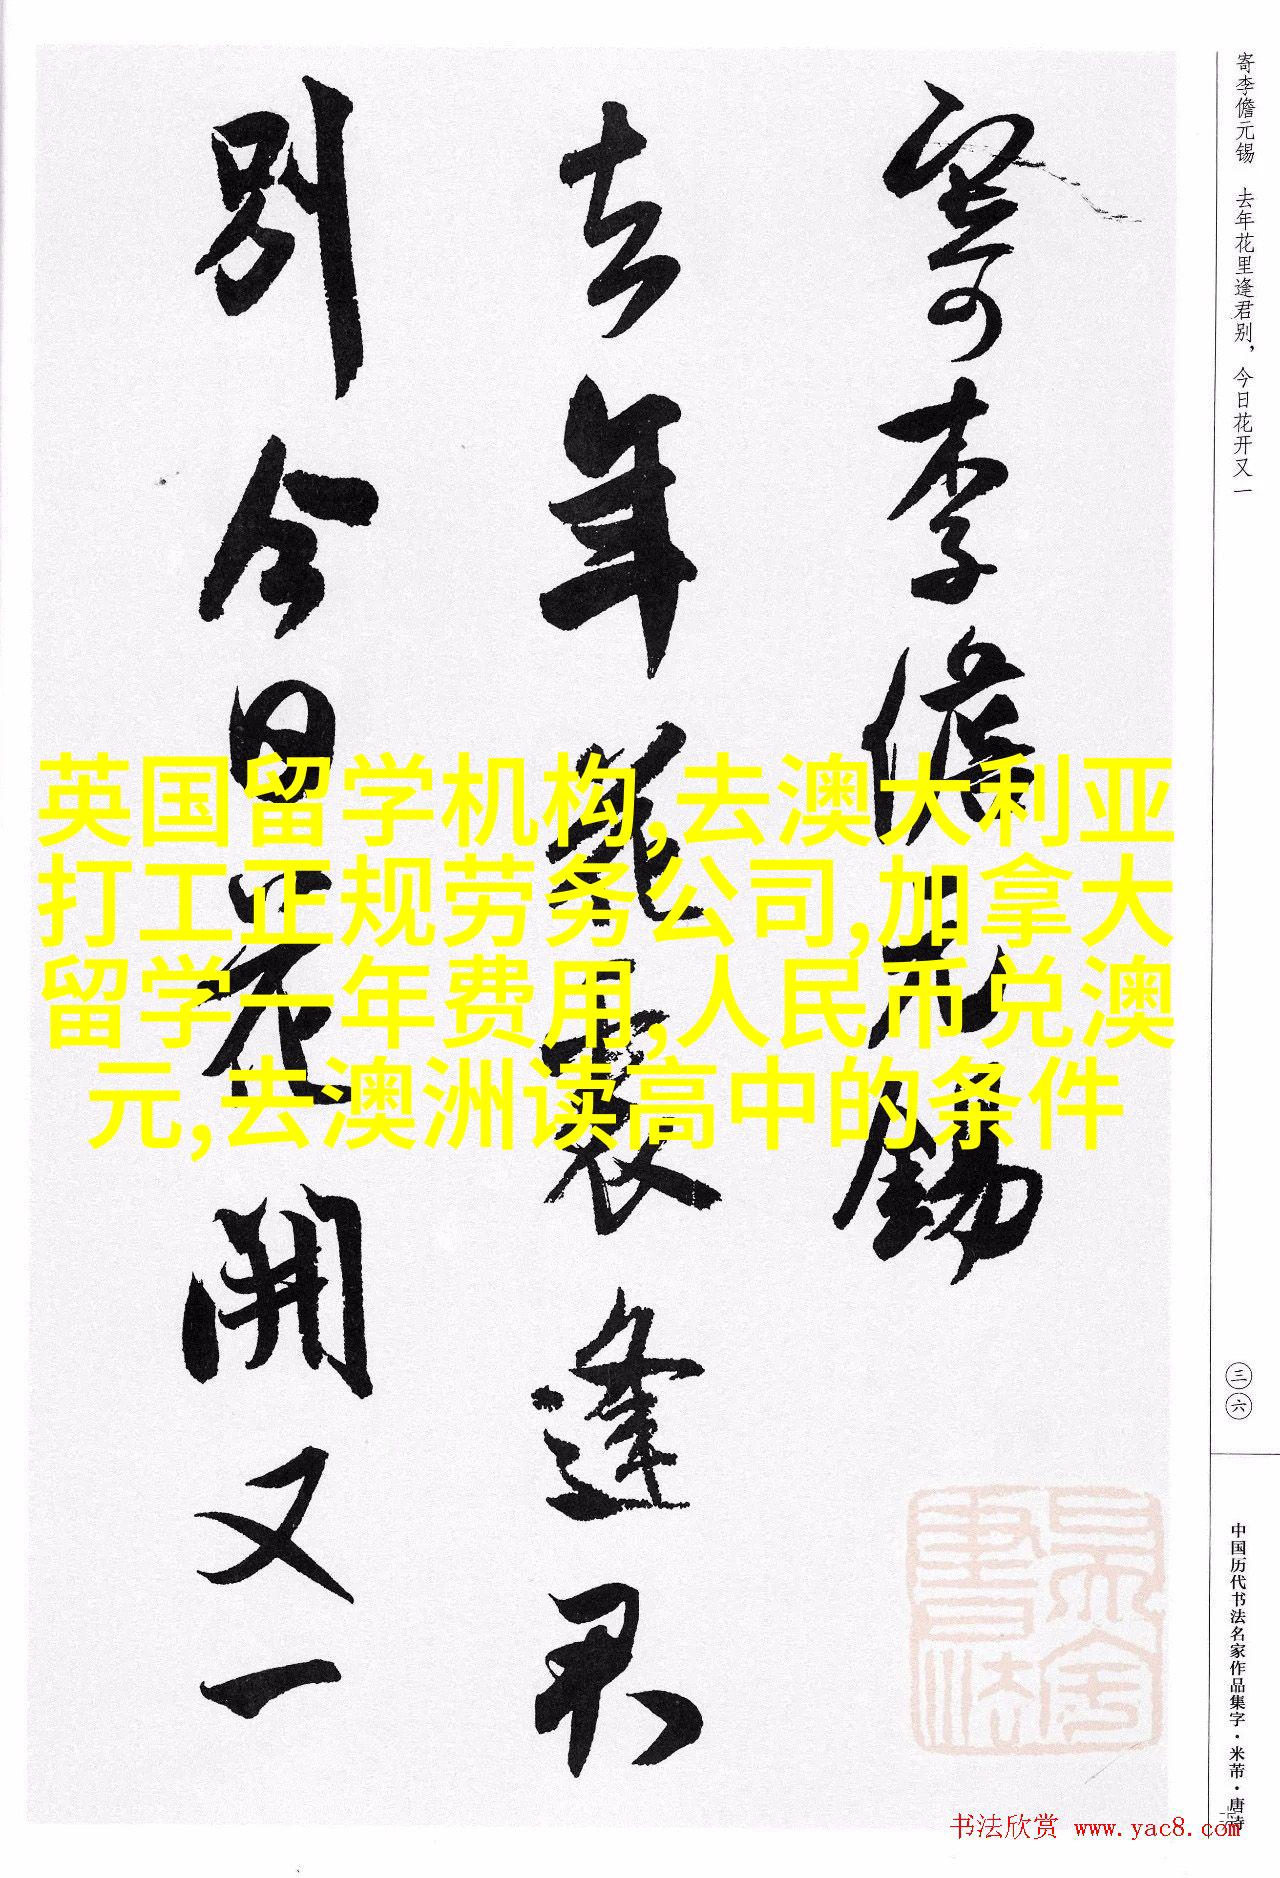 寄李儋元锡 去年花里逢君别，今日花开又一
寄李儋元錫
去年花裏逢君
别今日花開又一
英国留学机构,去澳大利亚
打工正规劳务公司,加拿大
留学一年费用,人民币兑澳
元,去澳洲读高中的条件
三六
中国历代书法名家作品集字·米芾·唐诗
书法欣赏 www.yac8.com